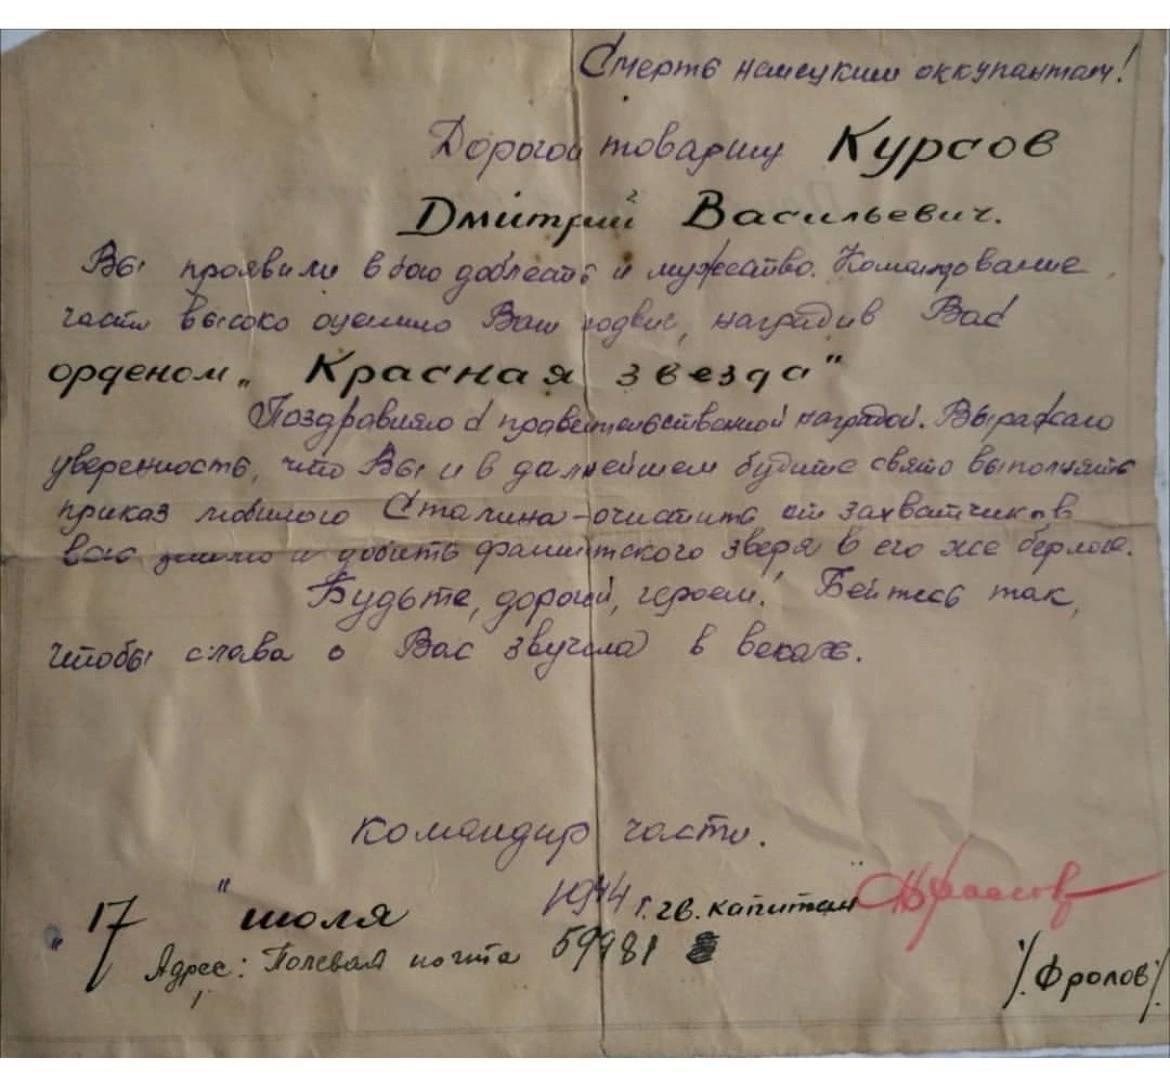 Смерть немецким оккупантам!
Дорогой товарищ Курсов
Дмитрий Васильевич.
Вы проявили в бою доблесть и мужество. Командование
части высоко оценило Ваш подвиг, наградив Вас
орденом „Красная звезда"
Поздравляю с правительственной наградой. Выражаю
уверенность, что Вы и в дальнейшем будите свято выполнять
приказ любимого Сталина - очистить от захватчиков
всю землю и добить фашистского зверя в его же берлоге.
Будьте, дорогой, героем. Бейтесь так,
чтобы слава о Вас звучала в веках.
Командир части.
„17" июля 1944 г. гв. капитан
/Фролов/
Адрес: Полевая почта 59981